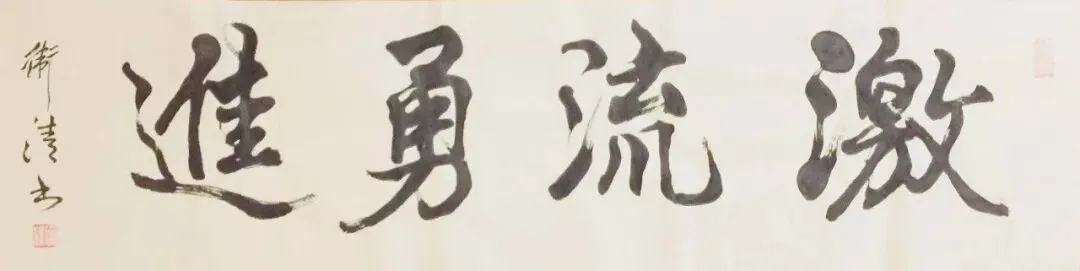 激流勇進
衛清书